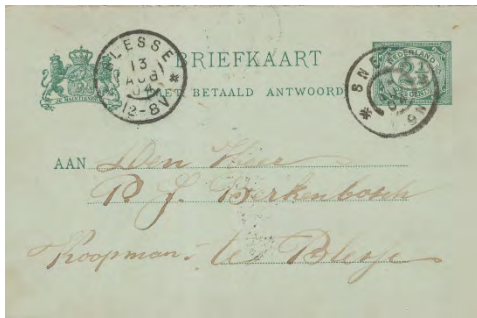 BLESSE
13
AUG
04
12-8V
BRIEFKAART
MET BETAALD ANTWOORD
NEDERLAND
2½
CENT
SNE
AAN Den Heer
P. J. Berkenbosch
Koopman te Blesse